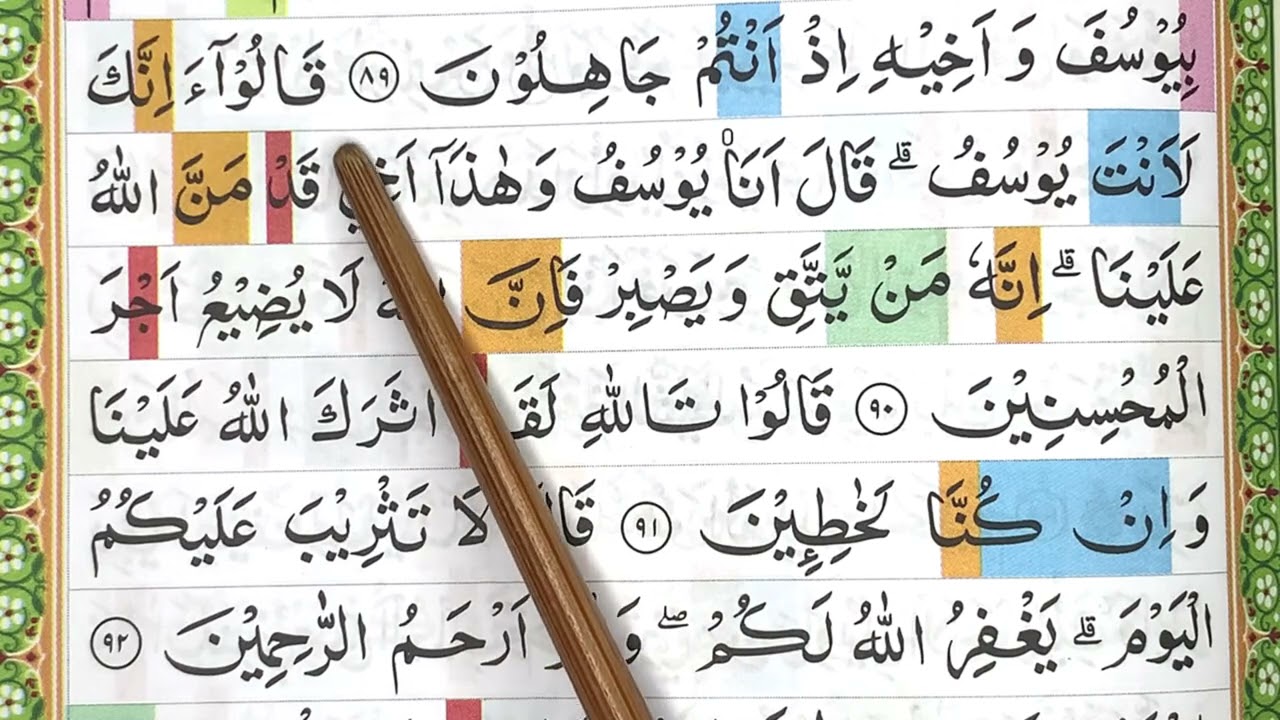 بِيُوْسُفَ وَ اَخِيْهِ اِذْ اَنْتُمْ جَاهِلُوْنَ ۸۹ قَالُوْۤا ءَ اِنَّكَ
لَاَنْتَ يُوْسُفُ ؕ قَالَ اَنَا۠ يُوْسُفُ وَ هٰذَاۤ قَدْ مَنَّ اللّٰهُ
عَلَيْنَا ؕ اِنَّهٗ مَنْ يَّتَّقِ وَ يَصْبِرْ فَاِنَّ لَا يُضِيْعُ اَجْرَ
الْمُحْسِنِيْنَ ۹۰ قَالُوْا تَاللّٰهِ اٰثَرَكَ اللّٰهُ عَلَيْنَا
وَ اِنْ كُنَّا لَخٰطِـِٕيْنَ ۹۱ لَا تَثْرِيْبَ عَلَيْكُمُ
الْيَوْمَ ؕ يَغْفِرُ اللّٰهُ لَكُمْ ۖ اَرْحَمُ الرّٰحِمِيْنَ ۹۲